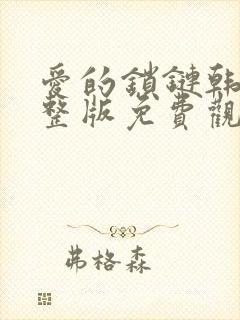 愛的鎖鏈韩
整版免費觀
弗格森